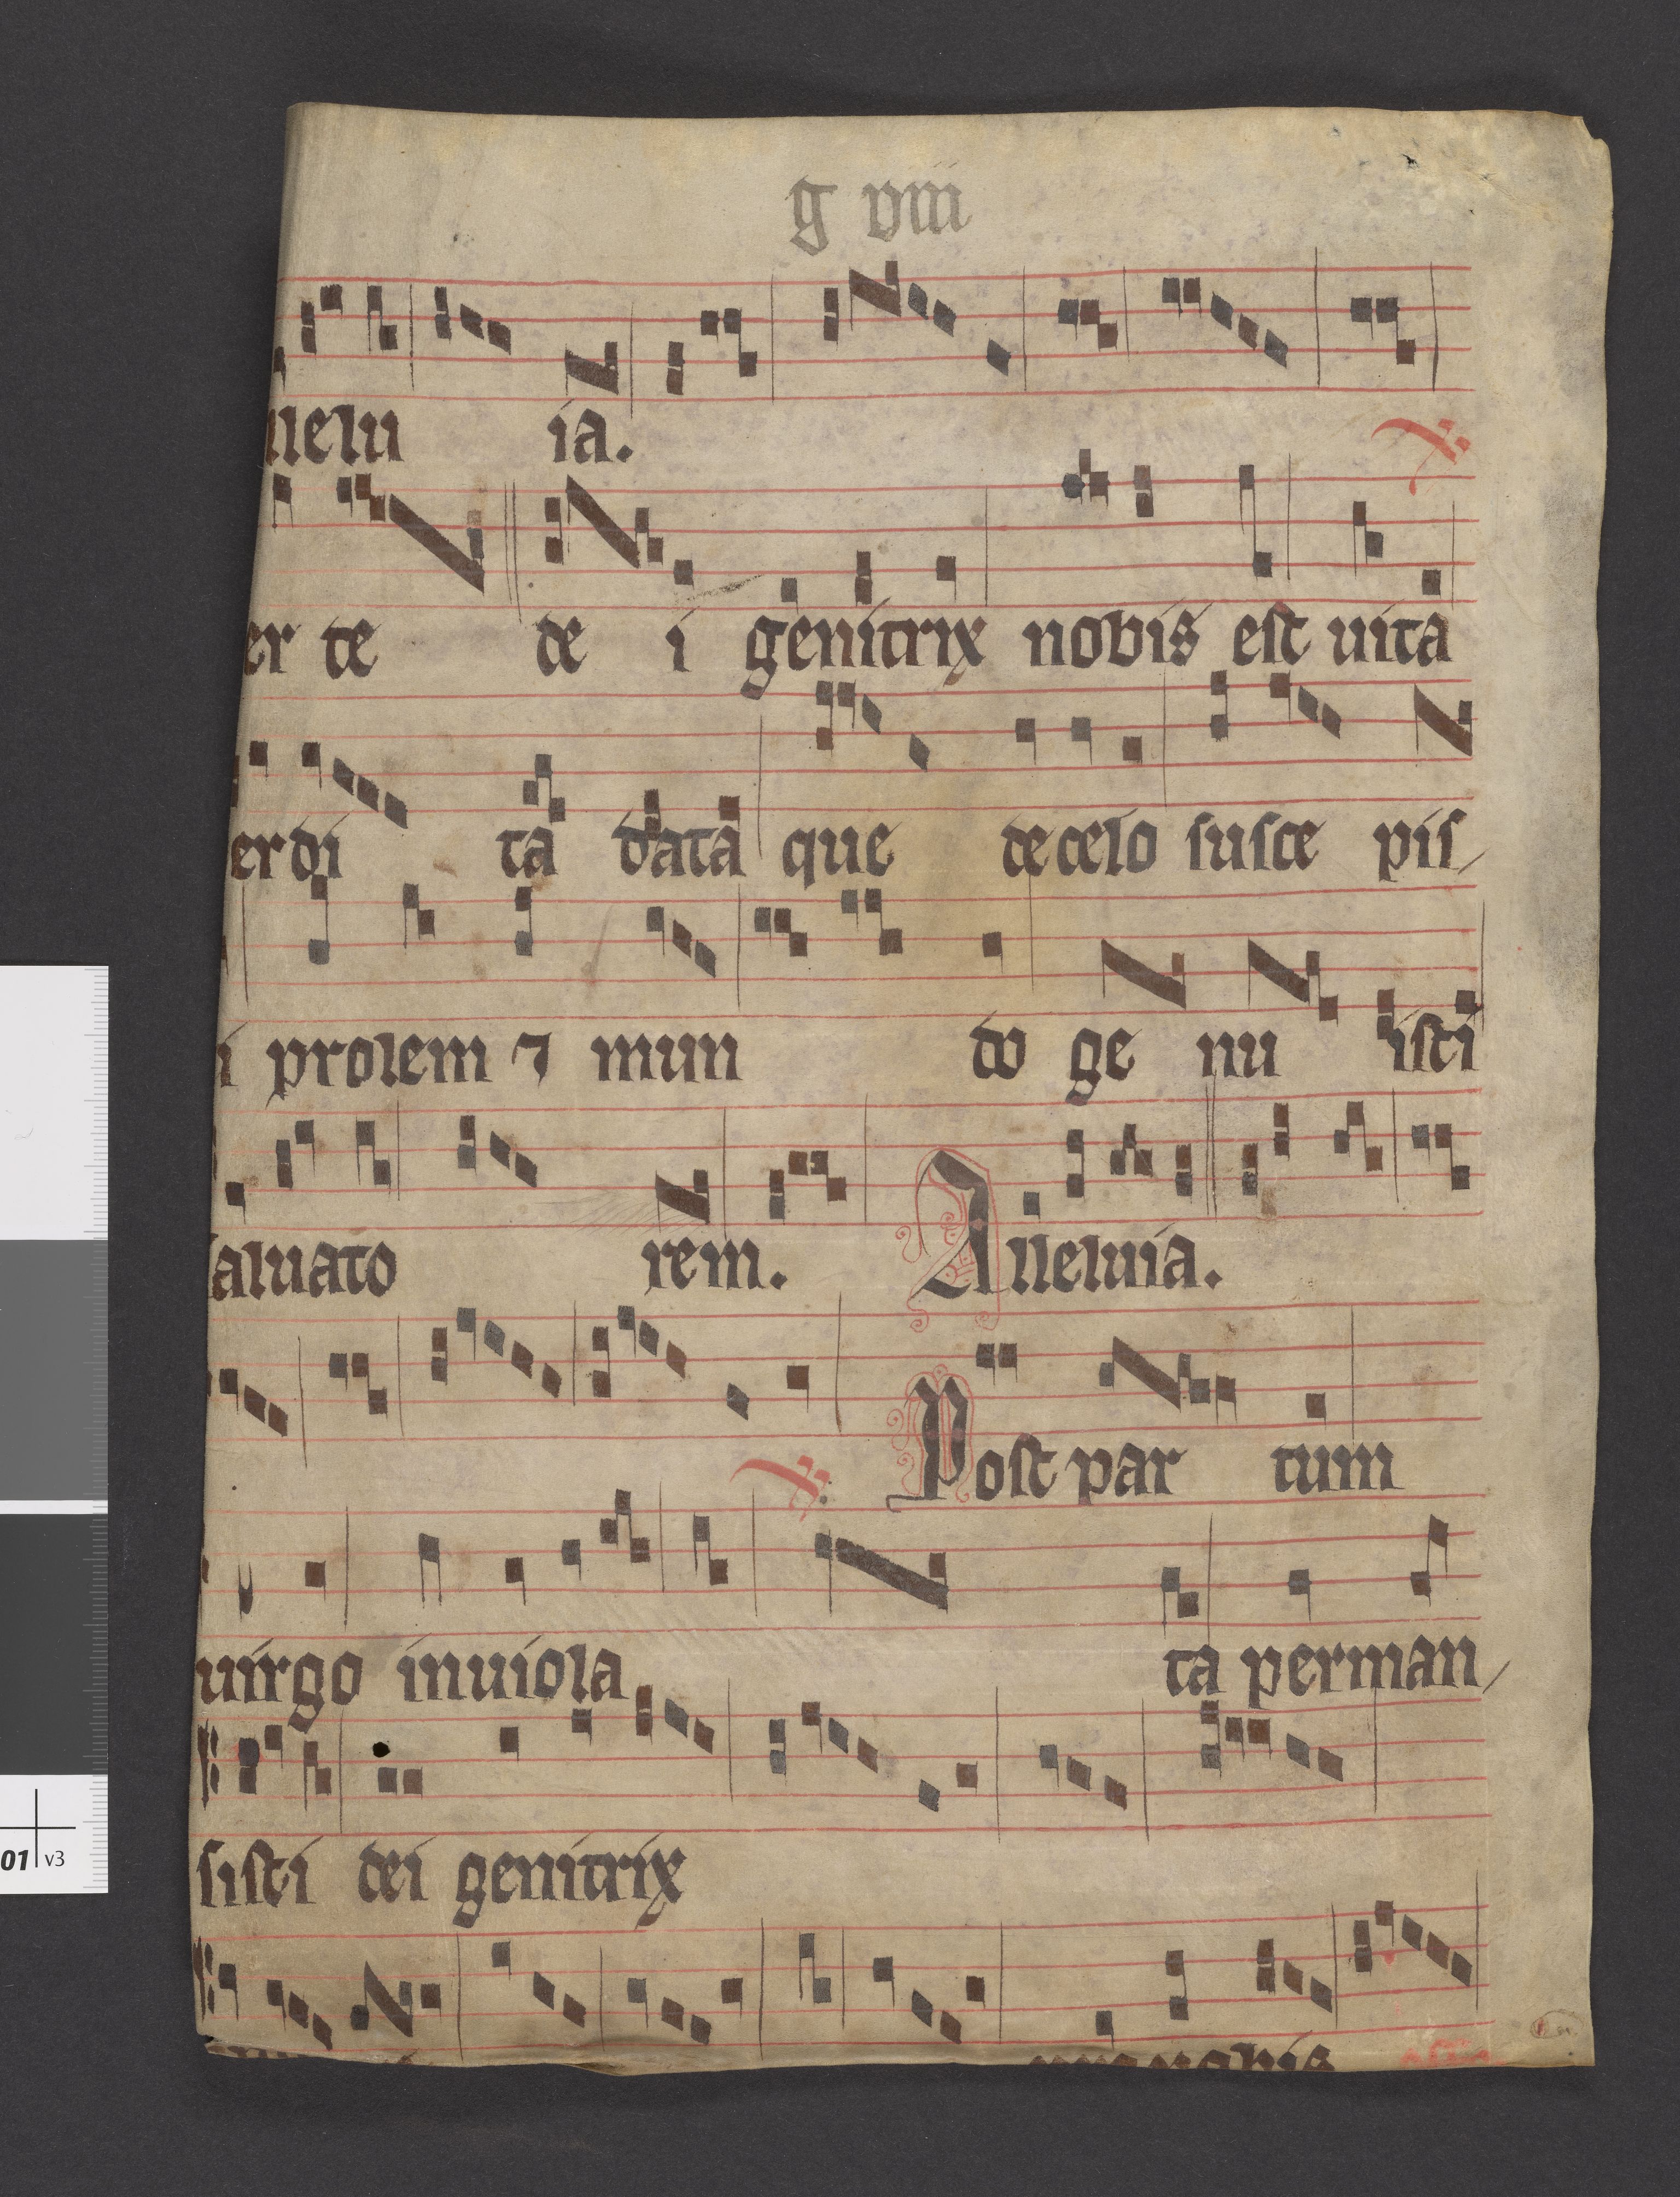 g viii
llelu ia. ℣
er te de i genitrix nobis est uita
erdi ta data que de celo susce pis/
i prolem ⁊ mun do ge nu isti
saluato rem. Alleluia.
℣. Post par tum
uirgo inuiola ta perman/
sisti dei genitrix
01 v3